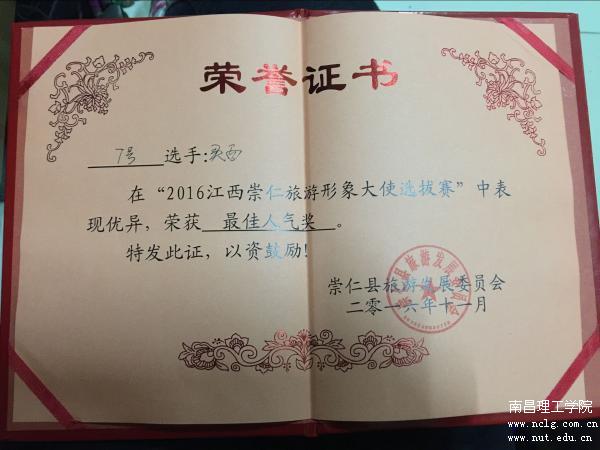 荣誉证书
7号 选手:
在“2016江西崇仁旅游形象大使选拔赛”中表
现优异，荣获 最佳人气奖 。
特发此证，以资鼓励!
崇仁县旅游发展委员会
二零一六年十一月
南昌理工学院
www.nclg.com.cn
www.nut.edu.cn